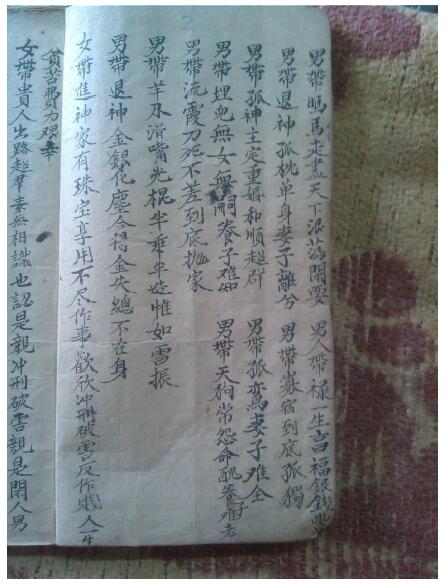 男帶駞馬走盡天下浪蕩閑耍 男人帶禄一生吉福銀錢
男帶退神孤枕单身妻子離分 男帶寡宿到底孤獨
男帶孤神主定重婚和順超群 男帶孤鸞妻子难全
男帶埋兒無女無嗣養子难 男帶天狗常怨命醜養子难老
男帶流霞刀死不差到底抛家
男帶羊刃滑嘴光棍半乖半 惟如雪振
男帶退神金銀化塵今得金失總不在身
女帶進神家有珠宝享用不尽作事歡欣冲刑破害反作贱人一生
貧苦費力艰辛
女帶貴人出路超羣素無相識也認是親冲刑破害親是閑人男